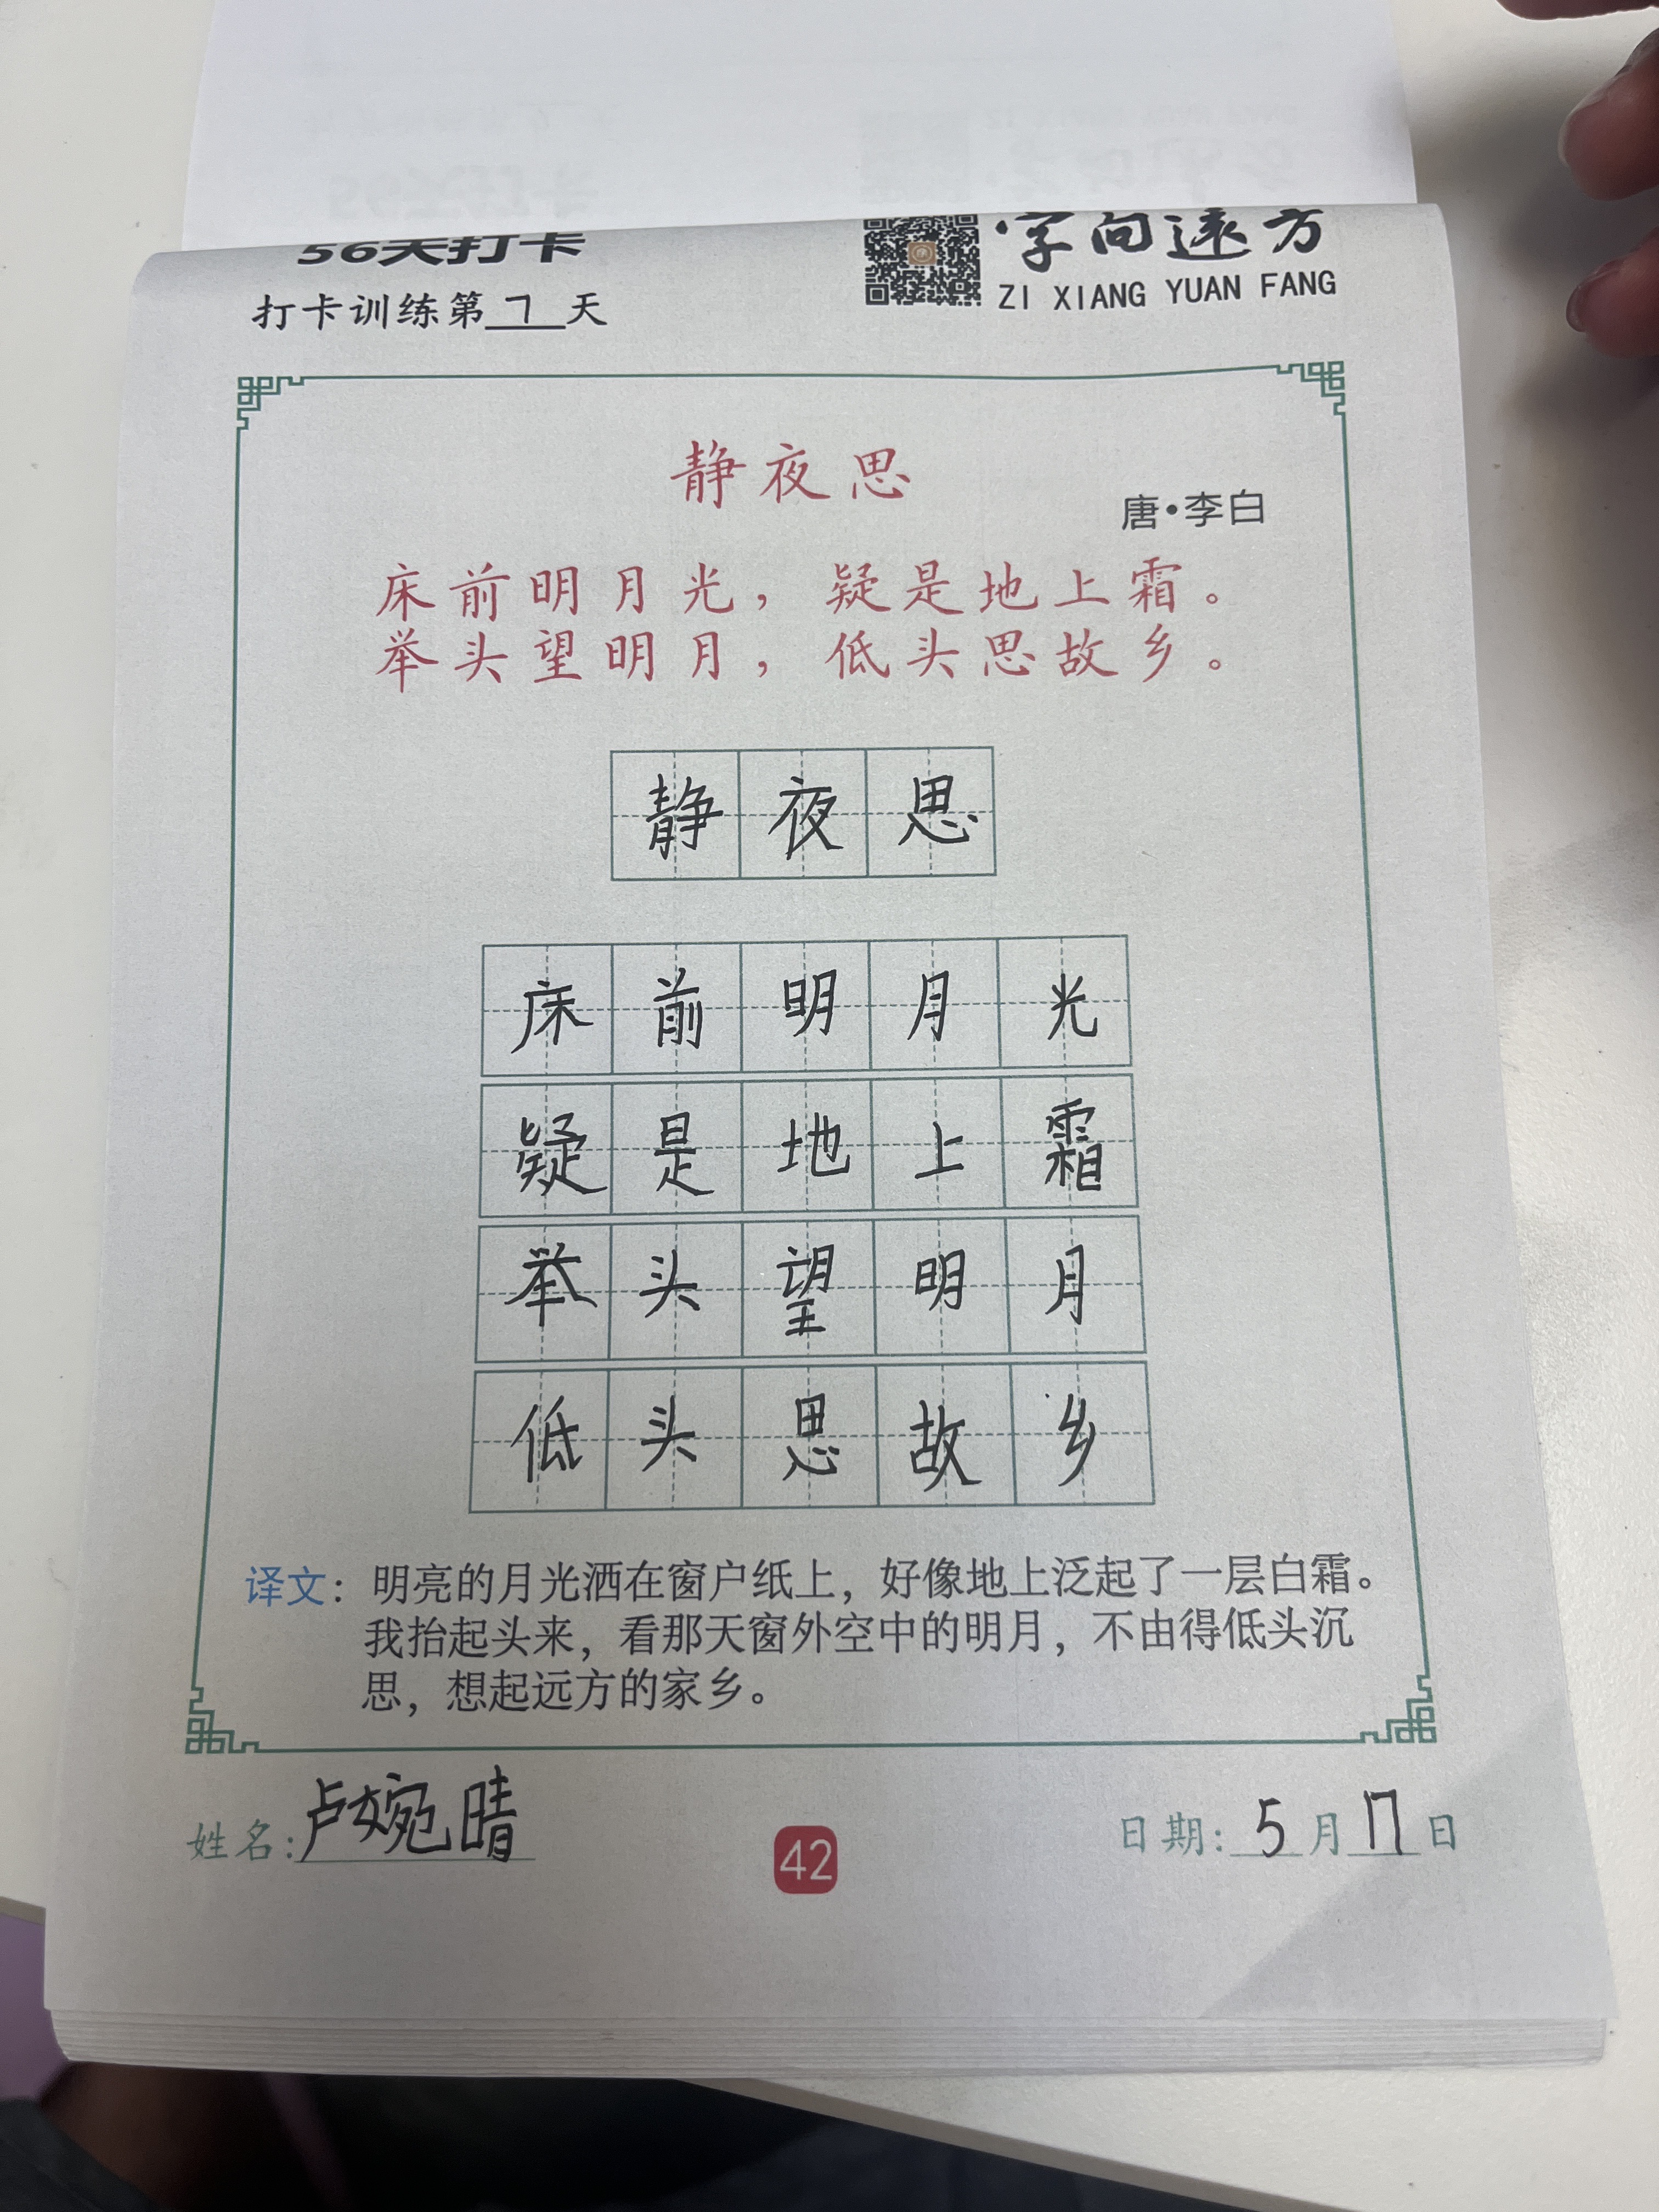 56天打卡
字向远方
ZI XIANG YUAN FANG
打卡训练第7天
静夜思
唐·李白
床前明月光，疑是地上霜。
举头望明月，低头思故乡。
静夜思
床前明月光
疑是地上霜
举头望明月
低头思故乡
译文：明亮的月光洒在窗户纸上，好像地上泛起了一层白霜。
我抬起头来，看那天窗外空中的明月，不由得低头沉
思，想起远方的家乡。
姓名：卢婉晴
42
日期：5月17日